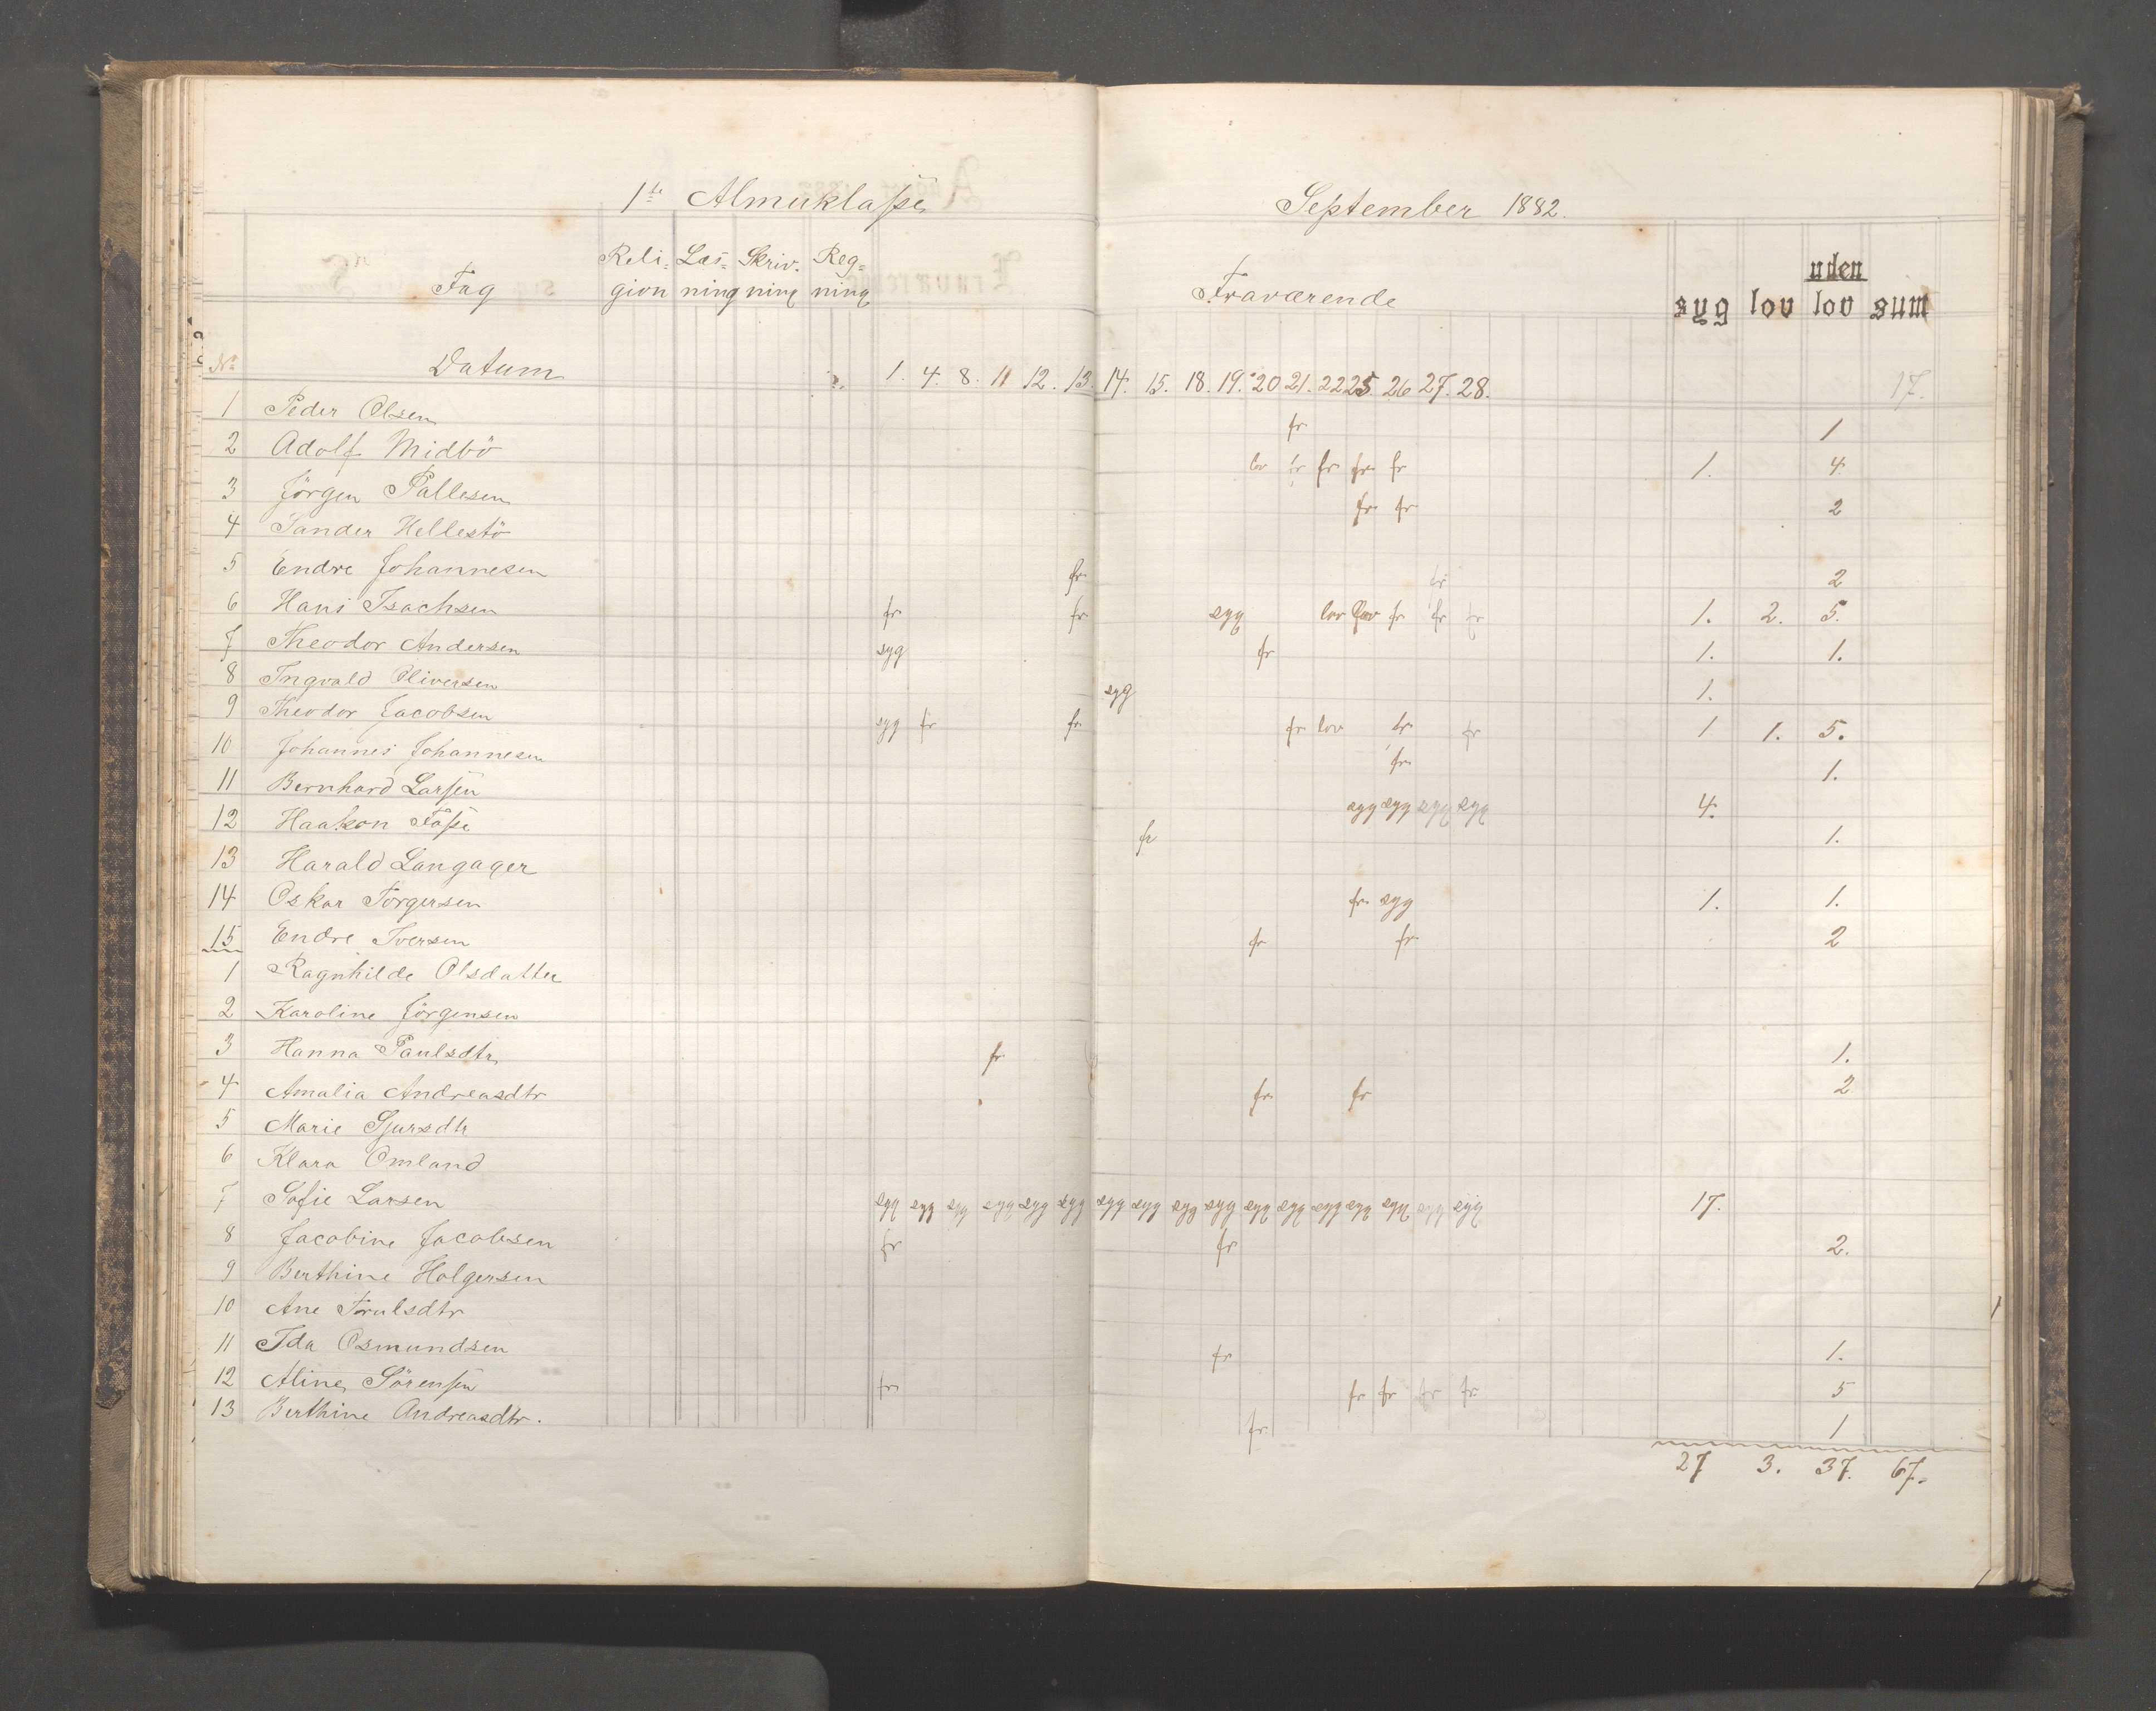 1ste Almuklasse
September 1882.
Fag Reli= Læs= Skriv. Reg=
gion ning ning ning
Fraværende
syg lov uden lov sum
No Datum 1. 4. 8. 11 12. 13. 14. 15. 18. 19. 20 21. 22 25. 26 27. 28. 17.
1 Peder Olsen fr 1
2 Adolf Midbö lov fr fr fr fr 1. 4.
3 Jörgen Pallesen fr fr 2
4 Sander Hellestö
5 Endre Johannesen fr fr 2
6 Hans Isachsen fr fr syg lov lov fr fr fr 1. 2. 5.
7 Theodor Andersen syg fr 1. 1.
8 Ingvald Oliversen syg 1.
9 Theodor Jacobsen syg fr fr fr lov fr fr 1 1. 5.
10 Johannes Johannesen fr 1.
11 Bernhard Larsen syg syg syg syg 4.
12 Haakon Fosse fr 1.
13 Harald Langager
14 Oskar Torgersen fr syg 1. 1.
15 Endre Iversen fr fr 2
1 Ragnhilde Olsdatter
2 Karoline Jörgensen
3 Hanna Paulsdtr fr 1.
4 Amalia Andreasdtr fr fr 2
5 Marie Sjursdtr
6 Klara Omland
7 Sofie Larsen syg syg syg syg syg syg syg syg syg syg syg syg syg syg syg syg syg 17.
8 Jacobine Jacobsen fr fr 2.
9 Berthine Holgersen
10 Ane Trulsdtr
11 Ida Osmundsen fr 1.
12 Aline Sörensen fr fr fr fr fr 5
13 Berthine Andreasdtr. fr 1
27 3. 37. 67.